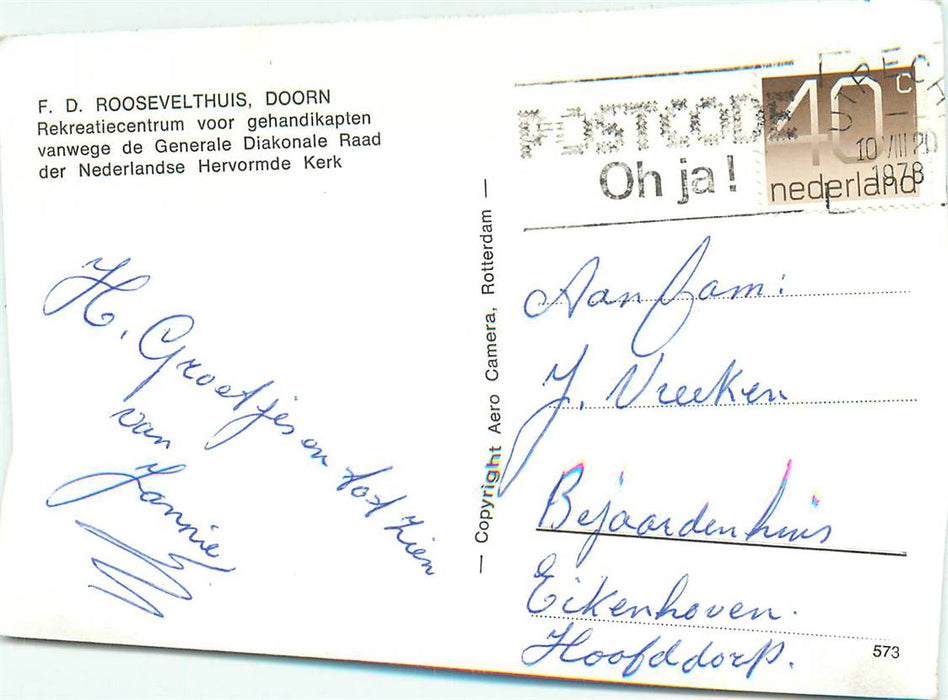 F. D. ROOSEVELTHUIS, DOORN
Rekreatiecentrum voor gehandikapten
vanwege de Generale Diakonale Raad
der Nederlandse Hervormde Kerk
POSTCODE
Oh ja!
UTRECHT
10 VIII 20
1978
40 c
nederland
H. Groetjes en tot zien
van
Jannie
— Copyright Aero Camera, Rotterdam —
Aan fam:
J. Vreeken
Bejaardenhuis
Eikenhoven.
Hoofddorp.
573